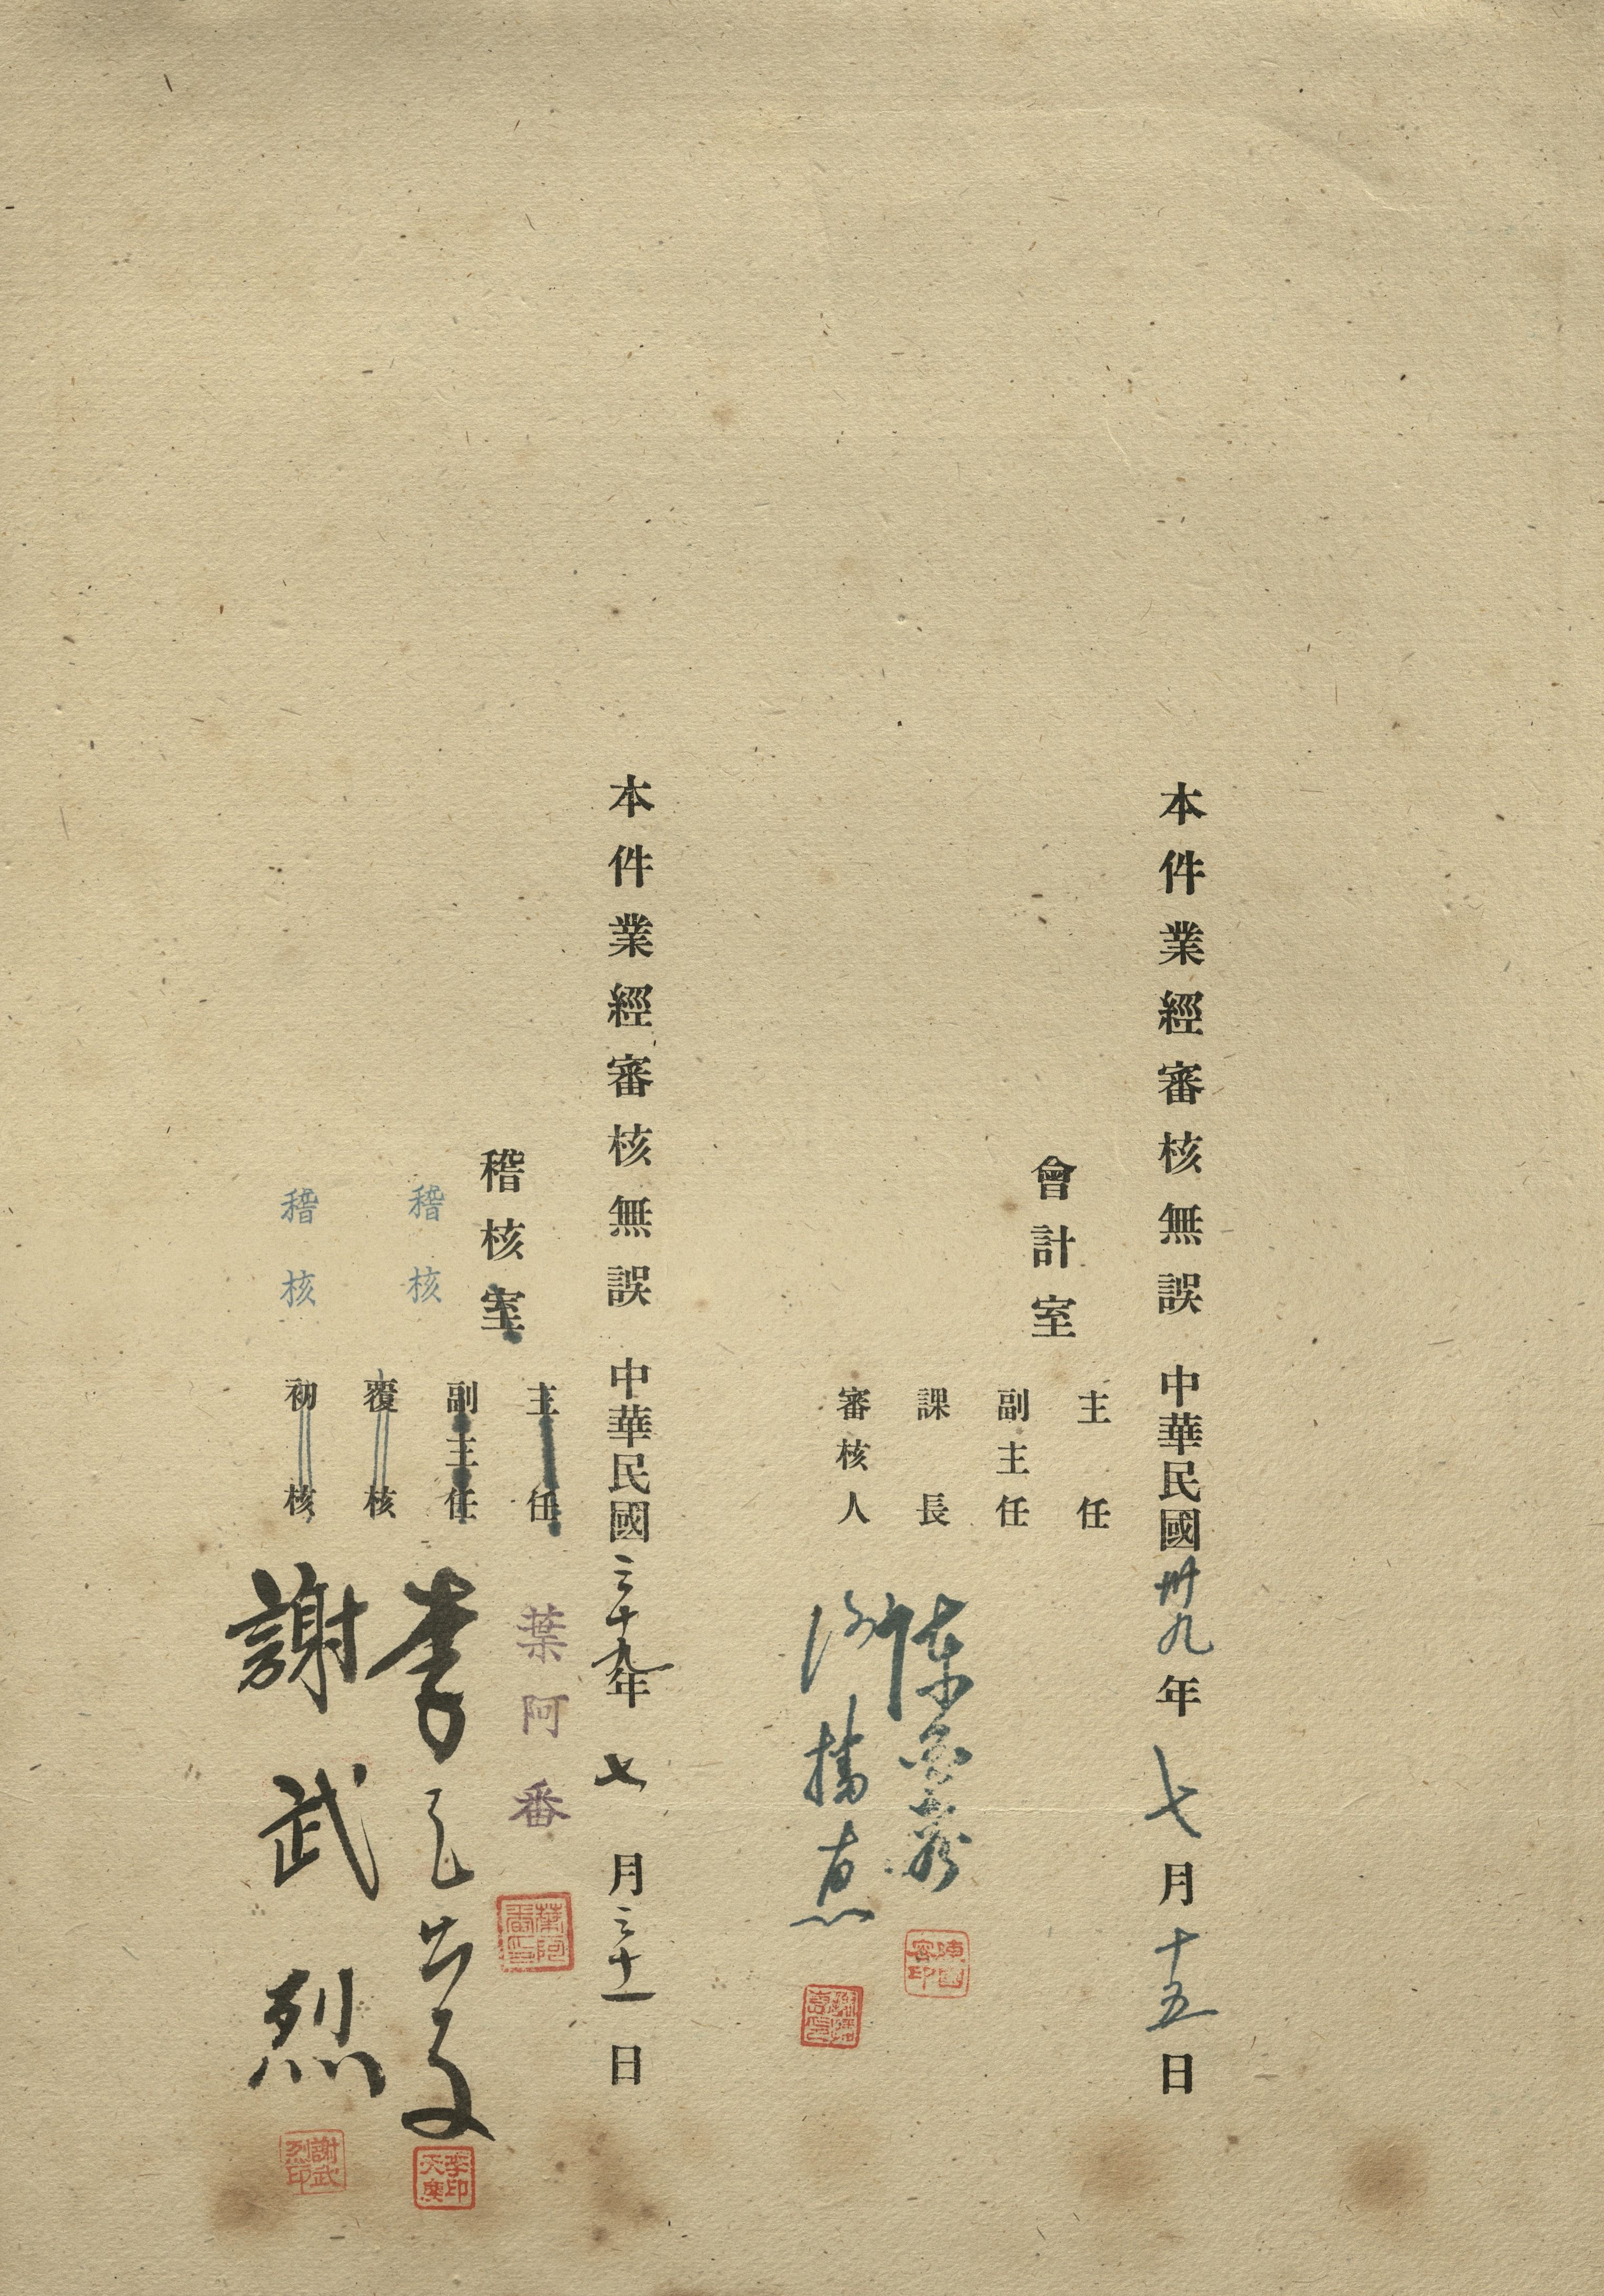 本件業經審核無誤 中華民國卅九年七月十五日
會計室
主任
副主任
課長
審核人
本件業經審核無誤 中華民國三十九年七月三十一日
稽核室
主任 葉阿番
副主任
稽核
覆核 李
稽核
初核 謝武烈
謝武烈印